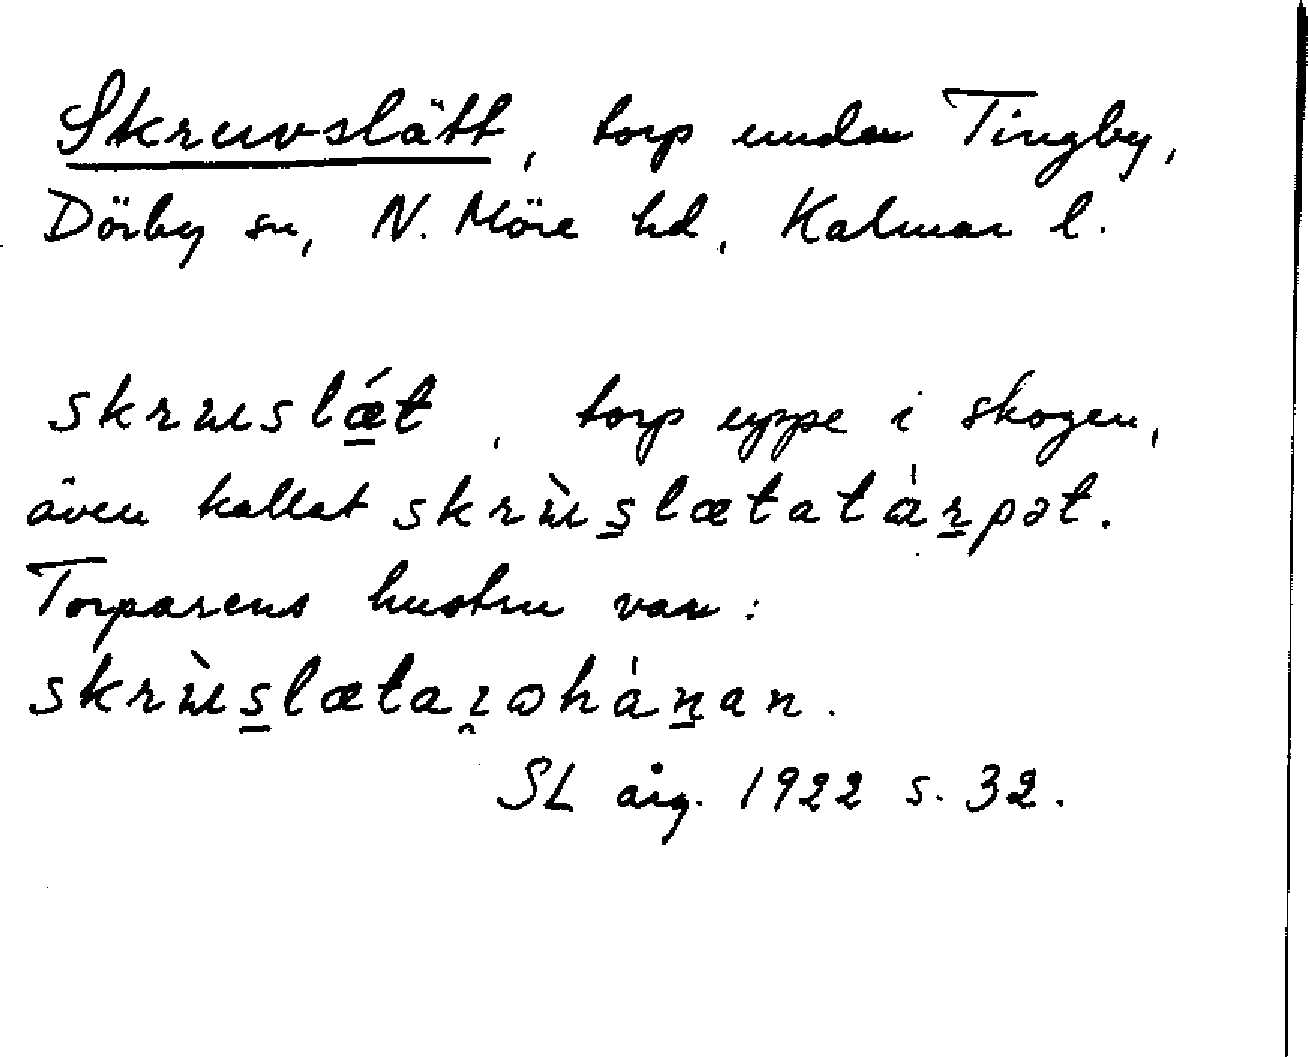 Skruvslätt, torp under Tingby,
Dörby sn, N. Möre hd, Kalmar l.
skrɯslǽ̠t, torp uppe i skogen,
även kallat skrɯ̀s̠lætatàr̠pət.
Torparens hustru var:
skrɯ̀s̠lætaɿ̯ɷhàn̠an.
SL årg. 1922 s. 32.